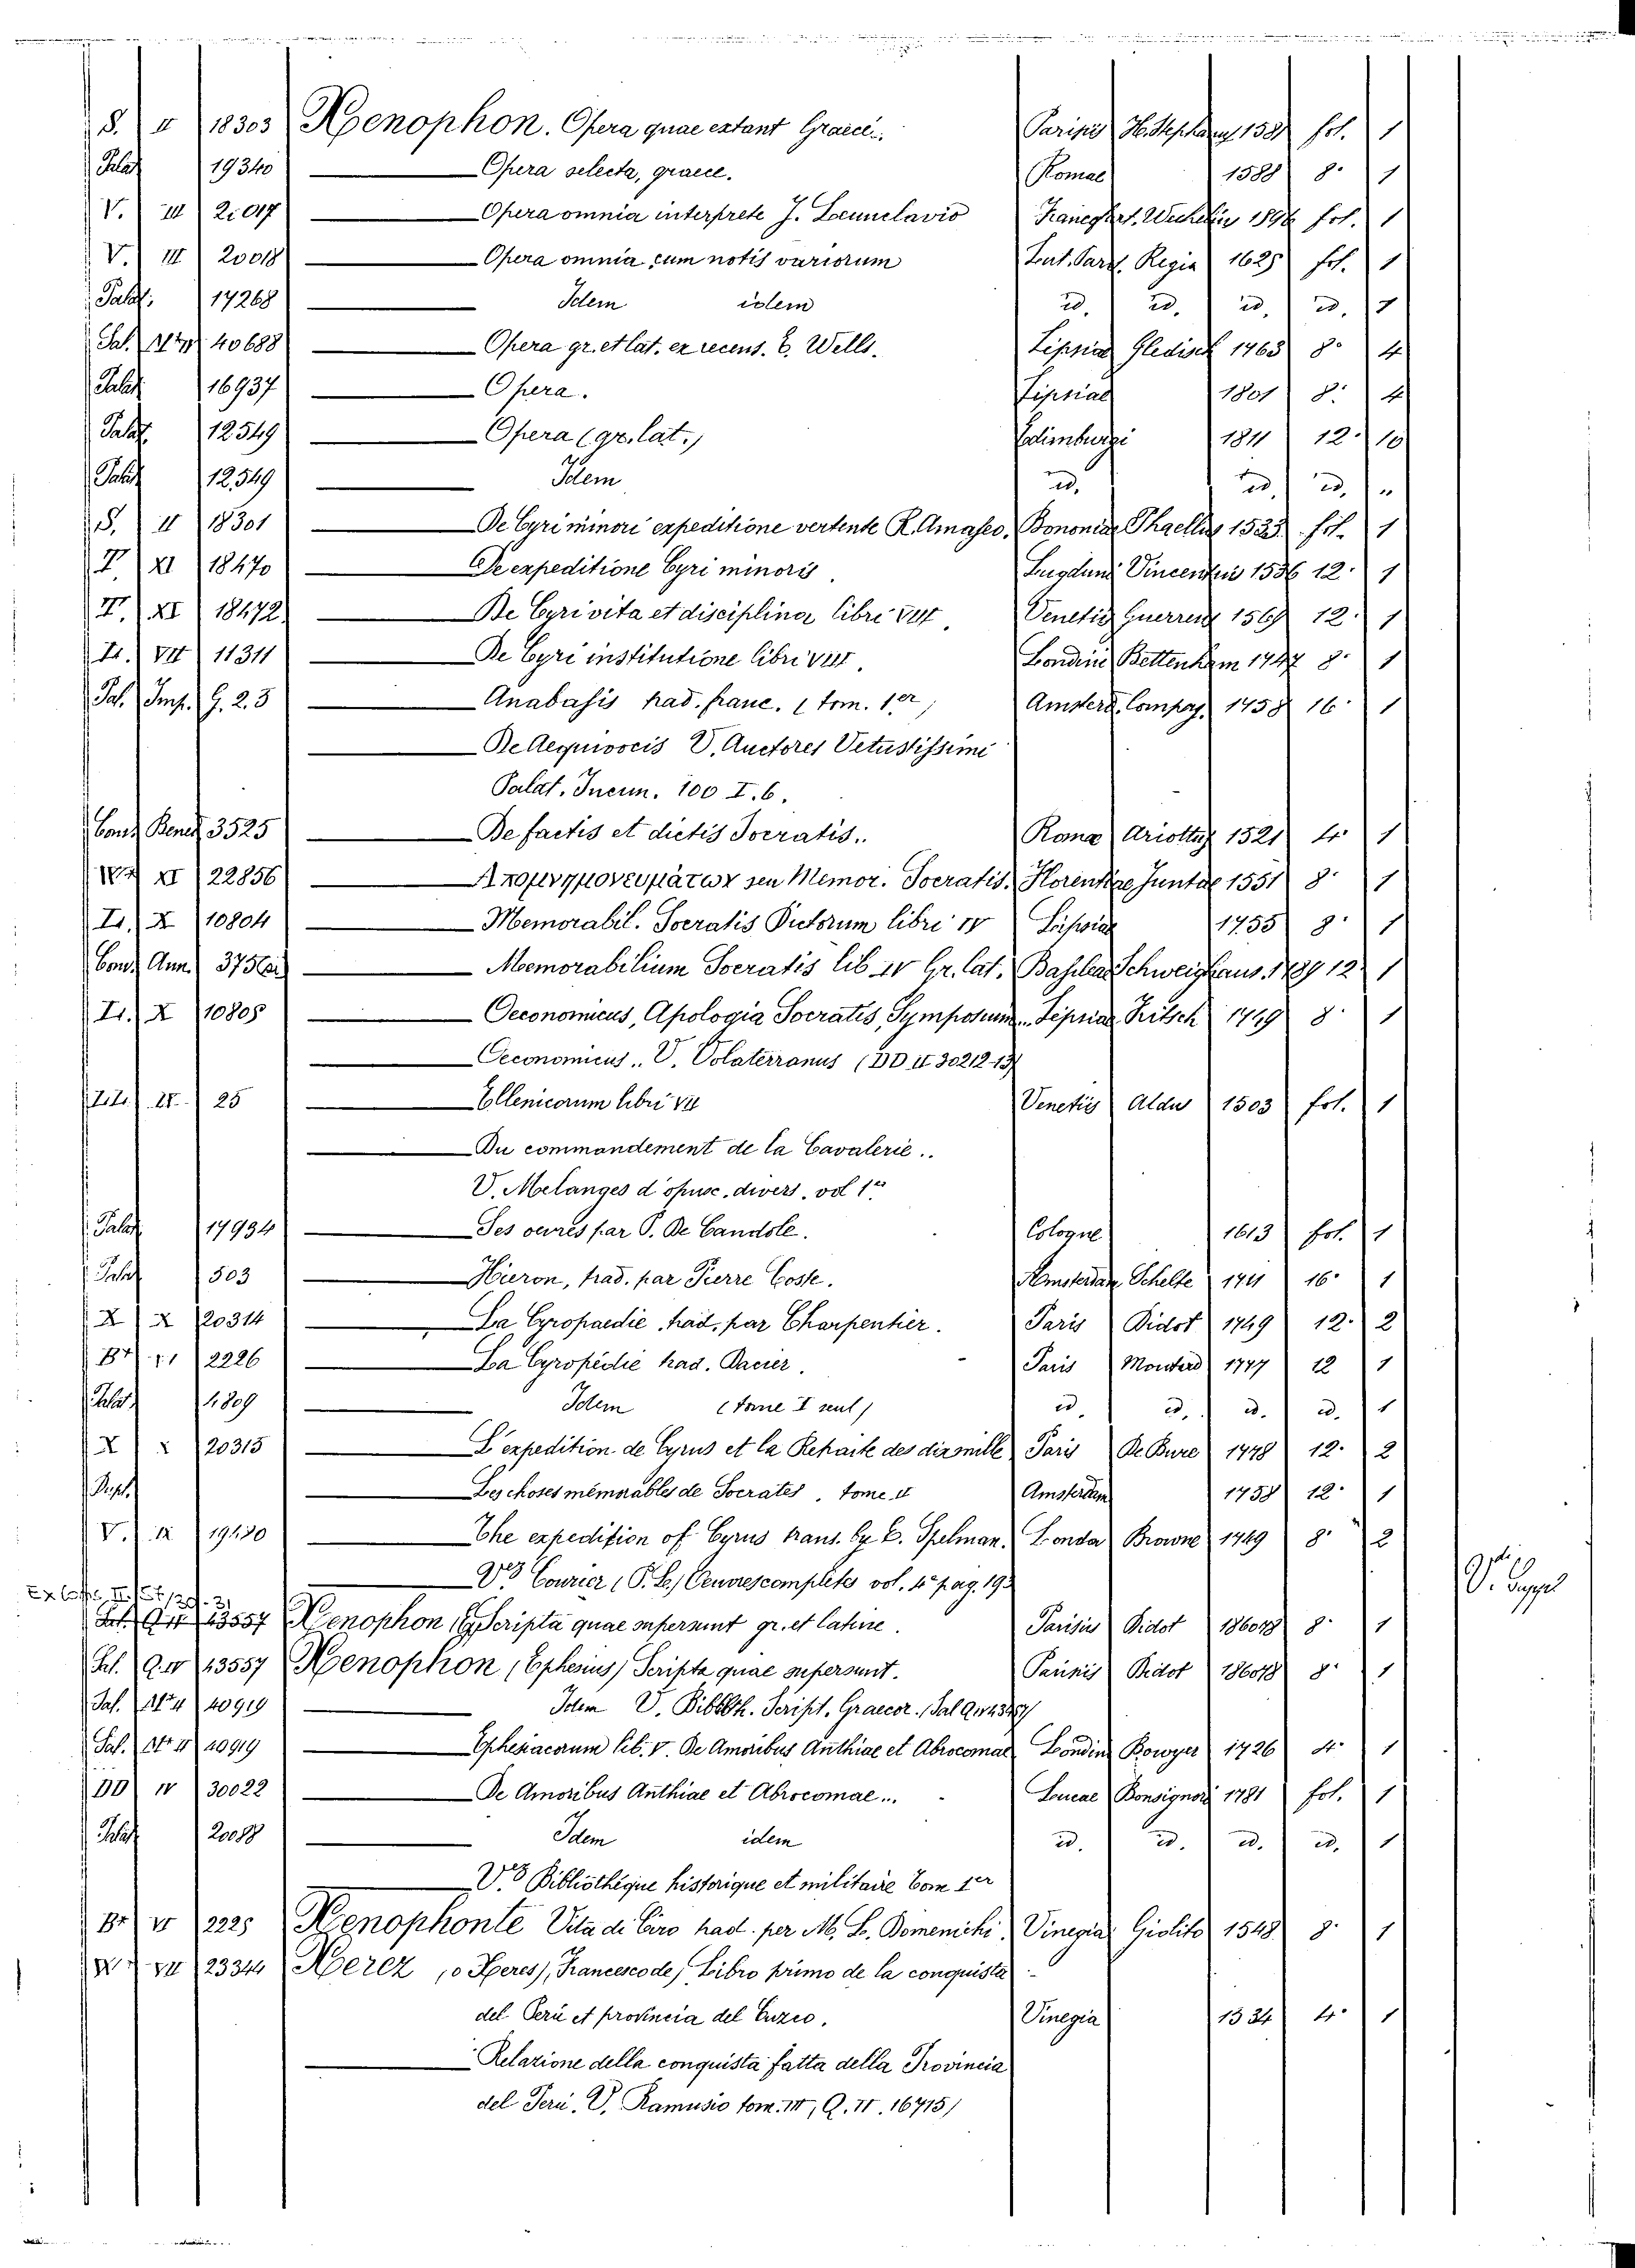 S. II 18303 Xenophon. Opera quae extant Graece. Parisiis H. Stephany 1581 fol. 1
Palat 19340 Opera selecta, graece. Romae 1588 8° 1
V. III 2:017 Opera omnia interprete J. Loeunclavio Francfort. Wechelius 1596 fol. 1
V. III 20018 Opera omnia cum notis variorum Lut. Paris. Regia 1625 fol. 1
Palat. 17268 Idem idem id. id. id. id. 1
Sal. 40688 Opera gr. et lat. ex recens. E. Wells. Lipsiae Gledisch 1763 8° 4
Palat 16937 Opera. Lipsiae 1801 8° 4
Palat. 12549 Opera (gr. lat.) Edimburgi 1811 12. 10
Palat 12549 Idem id. id. id. "
S. II 18301 De Cyri minori expeditione vertente R. Amaseo. Bononiae Phaellus 1533. fol. 1
T. XI 18470 De expeditione Cyri minoris. Lugduni Vincentius 1536 12. 1
T. XI 18472 De Cyri vita et disciplina libri VIII. Venetiis Guerreus 1569 12. 1
II. VII 11311 De Cyri institutione libri VIII. Londini Bettenham 1747 8° 1
Sal. Imp. G. 2. 3 Anabasis trad. franc. (tom. 1er) Amsterd. Compag. 1758 16° 1
De Aequivocis V. Auctores Vetustissimi
Palat. Incun. 100 I. 6.
Cons. Bened. 3525 De factis et dictis Socratis. Roma Ariottus 1521 4° 1
XI 22856 Απομνημονευμάτων seu Memor. Socratis. Florentiae Juntae 1551 8° 1
II. X 10804 Memorabil. Socratis Dictorum libri IV Lipsiae 1755 8° 1
Cons. Ann. Memorabilium Socratis lib. IV Gr. lat. Basileae Schweighaus. 1789 12. 1
II. X 10805 Oeconomicus, Apologia Socratis, Symposium. Lipsiae Fritsch 1749 8° 1
Oeconomicus. V. Volaterranus (DD II 30212-13)
25 Ellenicorum libri VII Venetiis Aldus 1503 fol. 1
Du commandement de la Cavalerie..
V. Melanges d'opusc. divers. vol 1er
Palat 17934 Ses oevres par P. De Candole. Cologne 1613 fol. 1
Palat 503 Hieron, trad. par Pierre Coste. Amsterdam Schelte 1711 16° 1
X X 20314 La Cyropaedie, trad. par Charpentier. Paris Didot 1749 12. 2
B+ VI 2226 La Cyropédie trad. Dacier. Paris Moutard 1777 12 1
Palat. 1809 Idem (tome I seul) id. id. id. id. 1
X X 20315 L'expedition de Cyrus et la Retraite des dix mille Paris De Bure 1778 12. 2
Les choses mémorables de Socrates. tome II Amsterdam 1758 12. 1
V. IX The expedition of Cyrus trans. by E. Spelman. London Browne 1749 8° 2
V.es Courier (P. L.) Oeuvres completes vol. 4° pag. 193
V. Suppl.
Sal. Q. IV 43557 Xenophon, Scripta quae supersunt gr. et latine. Parisiis Didot 8° 1
Sal. Q. IV 43557 Xenophon, (Ephesius) Scripta quae supersunt. Parisiis Didot 8° 1
Sal. 40919 Idem V. Biblioth. Script. Graecor.
Sal. 40919 Ephesiacorum lib. V. De Amoribus Anthiae et Abrocomae Londini Bowyer 1726 4° 1
DD IV 30022 De Amoribus Anthiae et Abrocomae... Lucae Bonsignori 1781 fol. 1
Palat 20088 Idem idem id. id. id. id. 1
V.es Bibliothèque historique et militaire Tom 1er
B+ VI 2225 Xenophonte Vita di Ciro trad. per M. L. Domenichi. Vinegia Giolito 1548 8° 1
VII 23344 Xerez, (o Xeres), Francesco de) Libro primo de la conquista
del Perù et provincia del Cuzco. Vinegia 1534 4° 1
Relazione della conquista fatta della Provincia
del Perù. V. Ramusio tom. III, Q. II. 16715)